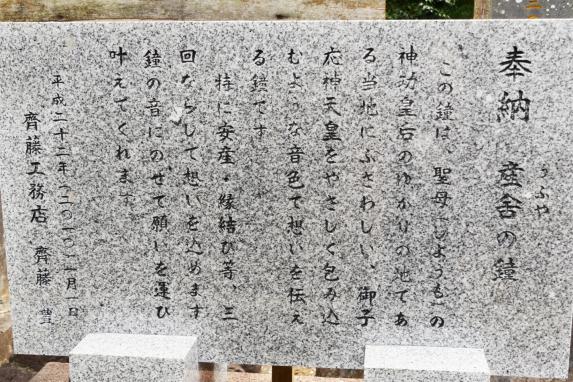 奉納 産舎の鐘
うぶや
この鐘は、聖母(しょうも)の
神功皇后のゆかりの地であ
る当地にふさわしい、御子
応神天皇をやさしく包み込
むような音色で想いを伝え
る鐘です
特に安産・縁結び等、三
回ならして想いを込めます
鐘の音にのせて願いを運び
叶えてくれます
平成二十二年(二〇一〇)一月一日
齊藤工務店 齊藤 豊